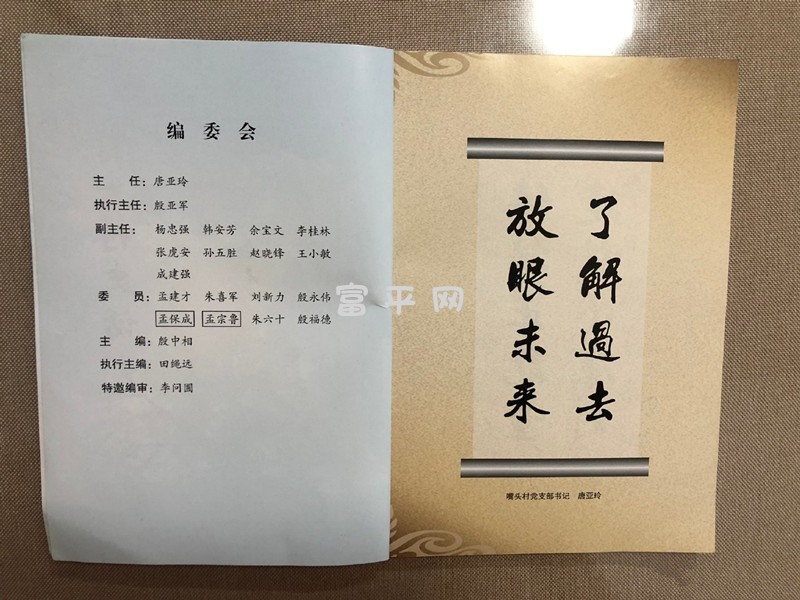 编委会
主 任：唐亚玲
执行主任：殷亚军
副主任： 杨忠强 韩安芳 余宝文 李桂林
张虎安 孙五胜 赵晓锋 王小敏
成建强
委 员：孟建才 朱喜军 刘新力 殷永伟
孟保成 孟宗鲁 朱六十 殷福德
主 编：殷中相
执行主编：田绳远
特邀编审：李问圃
了解過去
放眼未来
嘴头村党支部书记 唐亚玲
富平网